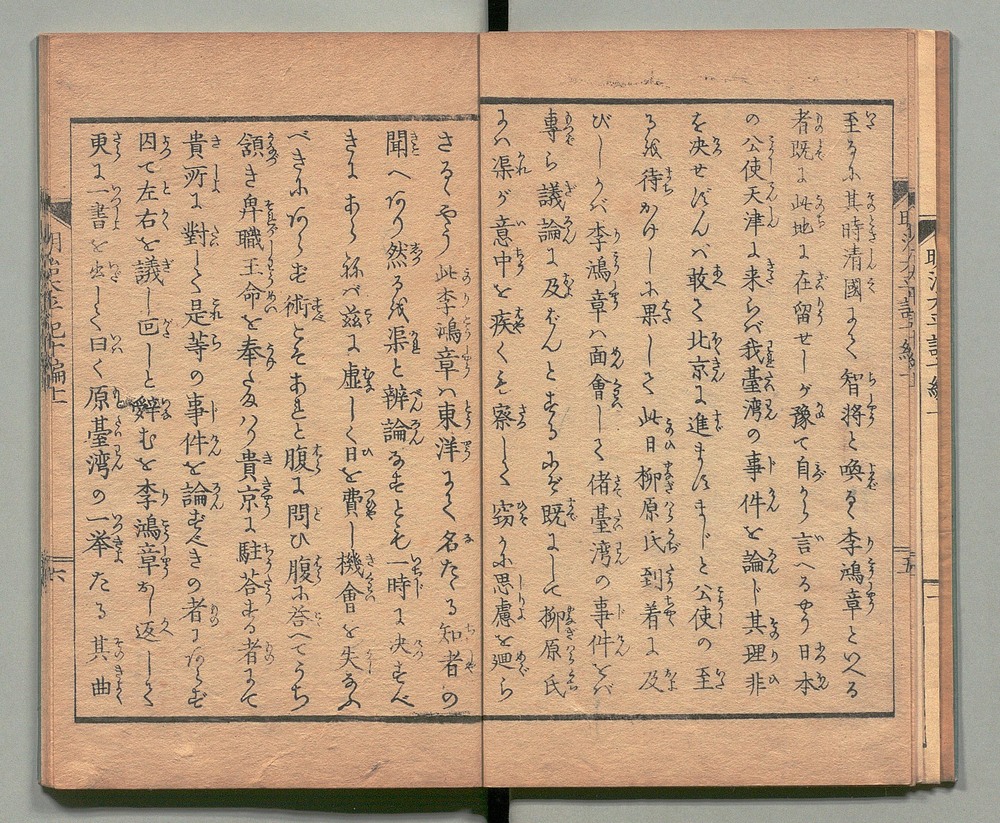 至るに其時清國にて智将と喚るゝ李鴻章といへる
者既に此地に在留せしが豫て自から言へるやう日本
の公使天津に来らバ我臺湾の事件を論じ其理非
を决せずんバ敢て北京に進ましまじと公使の至
るを待かけしに果して此日柳原氏到着に及
びしかバ李鴻章ハ面會して偖臺湾の事件をバ
專ら議論に及ばんとするにぞ既にして柳原氏
にハ渠が意中を疾くも察して窃に思慮を廻ら
さるゝやう此李鴻章ハ東洋にて名たる知者の
聞へあり然るを渠と辨論なすとも一時に决すべ
きにあらねバ茲に虚しく日を費し機會を失ふ
べきにあらず術こそあれと腹に問ひ腹に答へてうち
領き卑職王命を奉たるハ貴京に駐答する者にて
貴所に對して是等の事件を論ずべきの者にあらず
因て左右を議し回しと辭むを李鴻章おし返して
更に一書を出して曰く原臺湾の一挙たる其曲
五
六